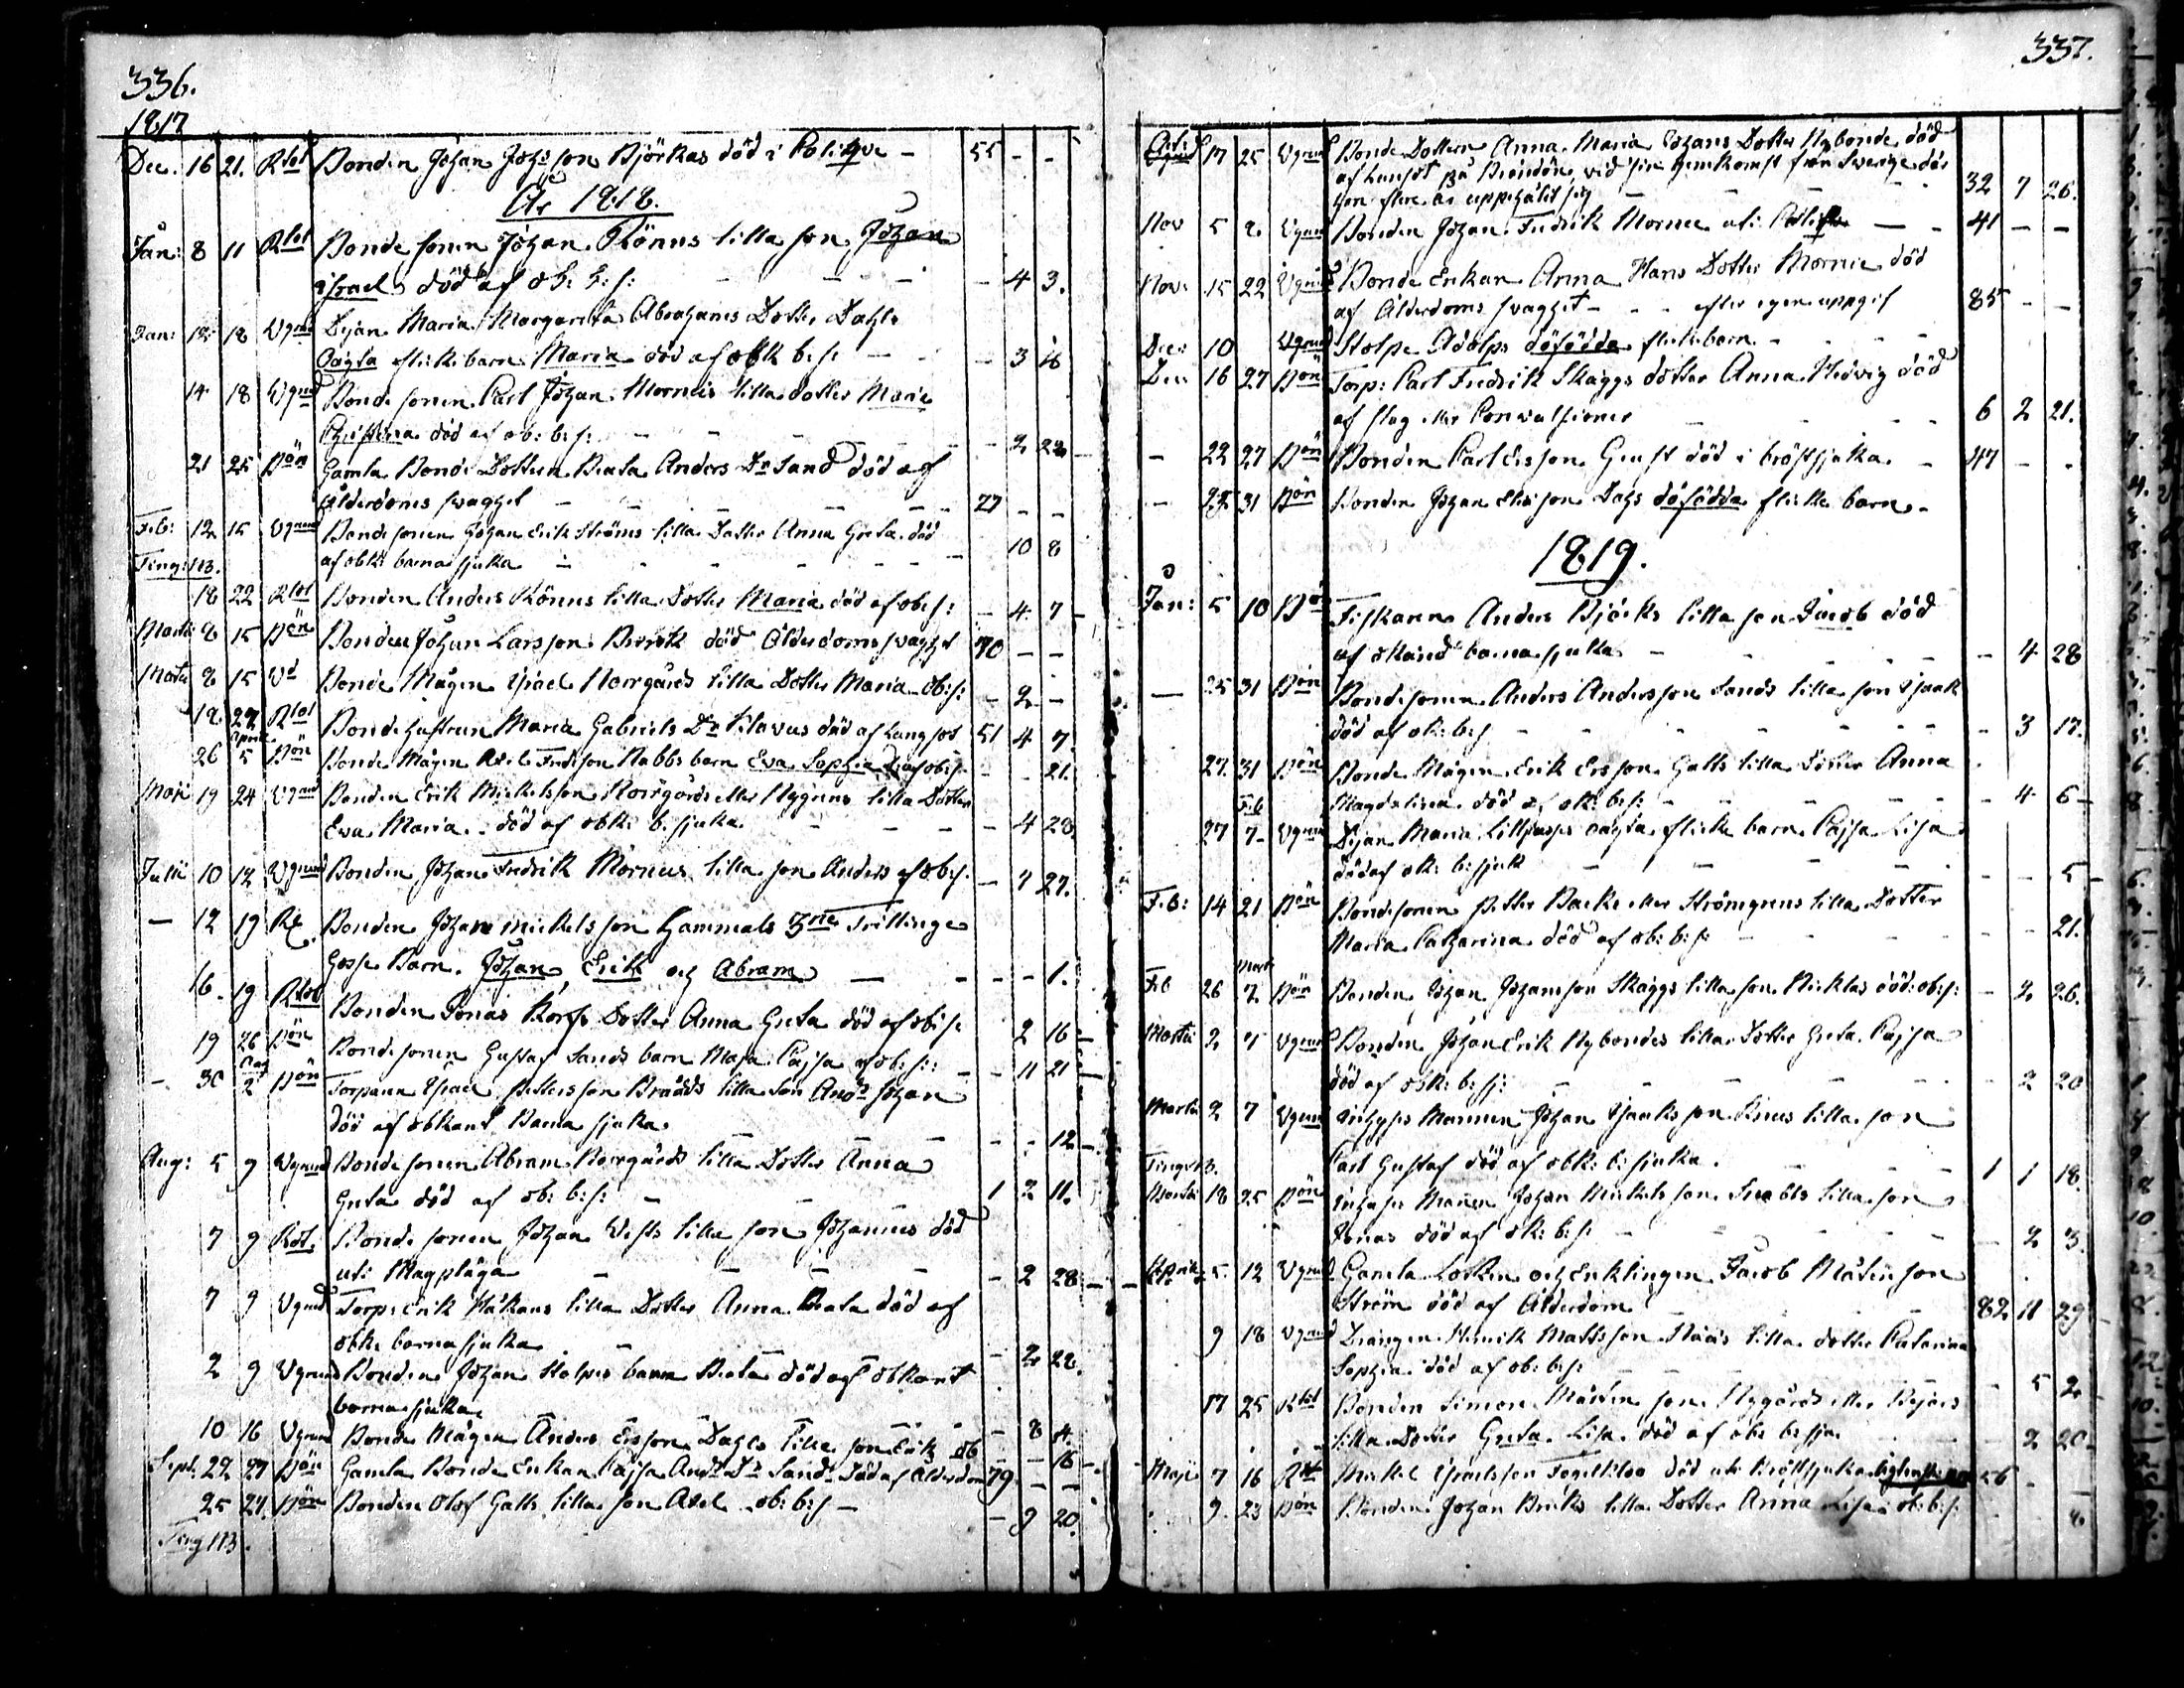 336.
1817
Dec. 16 21. Rtot Bonden Johan Johsson Björkas död i Colique - 55 - -
År 1818.
Jan: 8 11 Rtot Bonde sonen Johan Rönns lilla son Johan
Israel död af ob: b: s: - 4 3.
Jan: 18 Vgrund Pigan Maria Margareta Abrahams Dotter Dahls
oägta flicke barn Maria död af obk b: s: - 3 16
14 18 Vgrund Bonde sonen Carl Johan Mornæis lilla dotter Maria
Christina död af ob: b: s: - 2 22
21 25 Bön Gamla Bonde Dottern Beata Anders Dr Sand död af
ålderdoms svaghet 77 - -
Feb: 12 15 Vgrund Bonde sonen Johan Erik Ströms lilla Dotter Anna Greta död
af obk: barnasjuka - 10 8
Ting: 1/3.
18 22 Rtot Bonden Anders Rönns lilla Dotter Maria död af ob: s: - 4 7
Martii 8 15 Bön Bonden Johan Larsson död ålderdoms svaghet 70 - -
Martii 8 15 Vd Bonde Mågen Israel Norrgårds lilla Dotter Maria ob: s: - 2 -
18 29 Rtot Bonde hustrun Maria Gabriels Dr död af Lungsot 51 4 7
26 April 5 Bön Bonde Mågen Fredrsson Nabbs barn Eva Sophia af ob: s: - - 21.
Maji 19 24 Vgrund Bonden Erik Mickelsson Norrgårds eller Nygrens lilla Dotter
Eva Maria död af obk: b: sjuka - 4 28
Julii 10 12 Vgrund Bonden Johan Fredrik Mornæus lilla son Anders af ob: s. - 7 27.
- 12 19 Bonden Johan Mickelsson Hammals 3ne Trillinge
Gosse Barn. Johan, Erik och Abram - - 1.
16. 19 Rtot Bonden Jonas Korfs Dotter Anna Greta död af ob: s: 2 16
19 26 Bön Bonde sonen Gustaf Sands barn Maja Cajsa af ob: s: - 11 21
- 30 Aug 2 Bön Torparen Israel Pettersson Brudds lilla son Andrs Johan
död af obkant Barna sjuka. - - 12
Aug: 5 9 Vgrund Bonde sonen Abram Norrgårds lilla Dotter Anna
Greta död af ob: b: s: 1 2 11.
7 9 Rot. Bonde sonen Johan Wests lilla son Johannes död
uti Magplåga - 2 28
7 9 Vgrund Torp: Erik Håkans lilla Dotter Anna Beata död af
obk: barnasjuka - 2 22.
2 9 Vgrund Bonden Johan Stolpes barn Beata död af obkant
barnasjuka - 8 4.
10 16 Vgrund Bonde Mågen Anders Ersson Dahls lilla son Erik ob - - 16
Sept. 22 27 Bön Gamla Bonde Enkan Cajsa Andrs Dr Sand död af ålderdom 79. - -
25 27. Bön Bonden Olof Galls lilla son Axel ob: b: s - 9 20.
Ting 1/3.
337.
17 25 Vgrund Bonde Dottern Anna Maria Johans Dotter Nybonde död
af Lungsot på Brändön, vid sin hemkomst från Sverige där
hon flere år uppehålit sig 32 7 26.
Nov 5 8. Vgrund Bonden Johan Fredrik Mornæ uti - 41 - -
Nov: 15 22 Vgrund Bonde Enkan Anna Hans Dotter Mornæ död
af Ålderdoms svaghet - - efter egen uppgift 85 - -
Dec: 10 Vgrund Stolpe Adolps dödfödde flickebarn -
Dec 16 27 Bön Torp: Carl Fredrik Skaggs dotter Anna Hedvig död
af slag eller Convulsioner 6 2 21.
- 22 27 Bön Bonden Carl Ersson Gust död i bröstsjuka. - 47 - -
- 31 Bön Bonden Johan Ersson Dahs dödfödda flicke barn -
1819.
Jan: 5 10 Bön Fiskaren Anders Björks lilla son Jacob död
af okänd barnasjuka - 4 28
- 25 31 Bön Bonde sonen Anders Andersson Sands lilla son Isaak
död af ok: b: s - 3 17.
27. 31 Bön Bonde Mågen Erik Ersson Galls lilla Dotter Anna
Magdalena död af ok: b: s: - 4 6
27 Feb 7 Vgrund Pigan Maria oägta flicke barn Cajsa Lisa
död af ok: b: sjuk - - 5
Feb: 14 21 Bön Bonde sonen Petter Backs eller Strömgrens lilla Dotter
Maria Catharina död af ob: b: s: - - 21.
Feb 26 Mart 7. Bön Bonden Johan Johansson Skaggs lilla son Nicklas död: ob: s: - 2 26.
Martii 2 7 Vgrund Bonden Johan Erik Nybondes lilla Dotter Greta Cajsa
död af obk: b: s: - 2 20
Martii 2 7 Vgrund Inhyses Mannen Johan Isaaksson lilla son
Carl Gustaf död af obk: b: sjuka. 1 1 18.
Ting: 1/3.
Martii 18 25 Bön Inhyses Manen Johan Mickelsson lilla son
Jonas död af ok: b: s: - 2 3.
April 5. 12 Vgrund Gamla Lotsen och Enklingen Jacob Mårtensson
Ström död af Ålderdom 82 11 29
9 18 Vgrund Drängen Henrik Mattsson lilla dotter Catarina
Sophia död af ob: b: s: - 5 2
17 25 Rtot Bonden Simon Mårtensson Nygårds eller
lilla Dotter Greta Lisa död af ob: b: sj: - 2 20
Maji 7 16 Mickel Israelsson död uti Bröstsjuka 56 -
9. 23 Bön Bonden Johan lilla Dotter Anna Lisa ob: b: s: